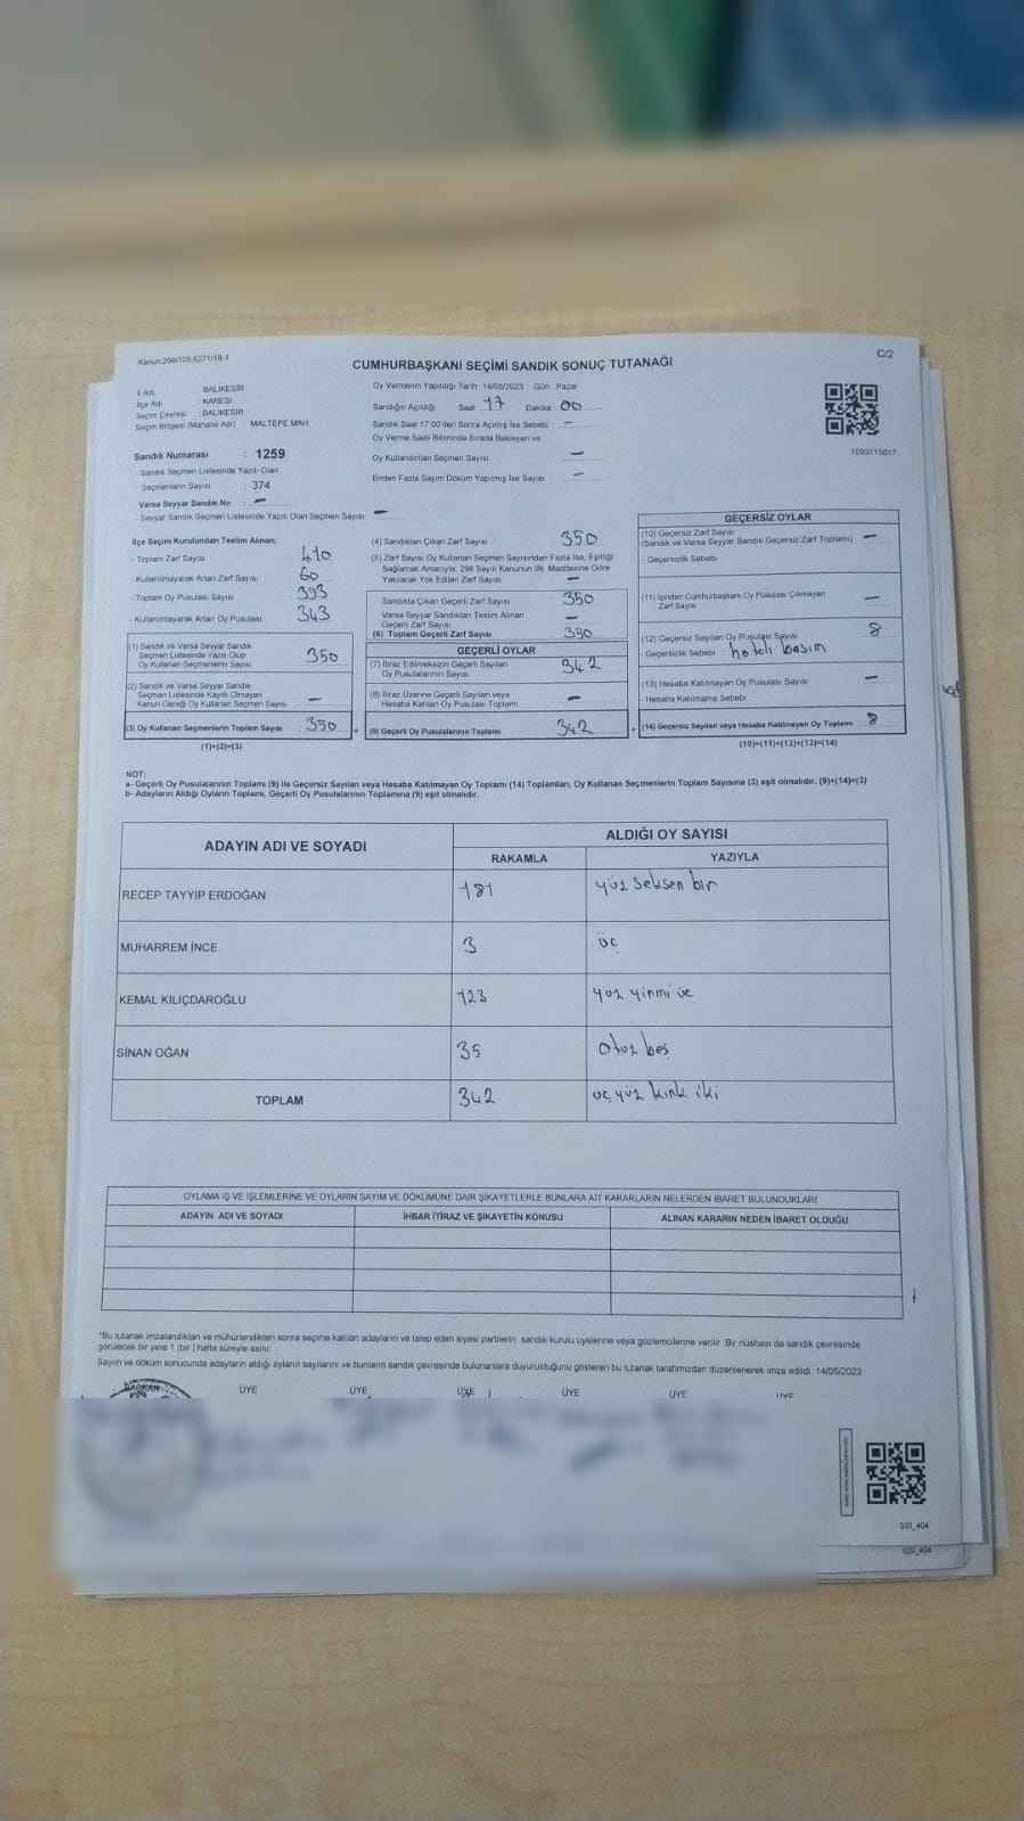 Kanun:298/105,6271/18-1
C/2
CUMHURBAŞKANI SEÇİMİ SANDIK SONUÇ TUTANAĞI
İl Adı : BALIKESİR
İlçe Adı : KARESİ
Seçim Çevresi : BALIKESİR
Seçim Bölgesi (Mahalle Adı) MALTEPE MAH.
Sandık Numarası : 1259
Sandık Seçmen Listesinde Yazılı Olan
Seçmenlerin Sayısı : 374
Varsa Seyyar Sandık No : -
Seyyar Sandık Seçmen Listesinde Yazılı Olan Seçmen Sayısı -
Oy Vermenin Yapıldığı Tarih: 14/05/2023 Gün : Pazar
Sandığın Açıldığı Saat : 17 Dakika : 00
Sandık Saat 17:00'den Sonra Açılmış İse Sebebi : -
Oy Verme Saati Bitiminde Sırada Bekleyen ve
Oy Kullandırılan Seçmen Sayısı -
Birden Fazla Sayım Döküm Yapılmış İse Sayısı -
İlçe Seçim Kurulundan Teslim Alınan:
- Toplam Zarf Sayısı 410
- Kullanılmayarak Artan Zarf Sayısı 60
- Toplam Oy Pusulası Sayısı 393
- Kullanılmayarak Artan Oy Pusulası
(1) Sandık ve Varsa Seyyar Sandık
Seçmen Listesinde Yazılı Olup
Oy Kullanan Seçmenlerin Sayısı 350
(2) Sandık ve Varsa Seyyar Sandık
Seçmen Listesinde Kayıtlı Olmayan
Kanun Gereği Oy Kullanan Seçmen Sayısı -
(3) Oy Kullanan Seçmenlerin Toplam Sayısı 350
(1)+(2)=(3)
(4) Sandıktan Çıkan Zarf Sayısı 350
(5) Zarf Sayısı Oy Kullanan Seçmen Sayısından Fazla İse, Eşitliği
Sağlamak Amacıyla, 298 Sayılı Kanunun 98. Maddesine Göre
Yakılarak Yok Edilen Zarf Sayısı -
Sandıkta Çıkan Geçerli Zarf Sayısı 350
Varsa Seyyar Sandıktan Teslim Alınan
Geçerli Zarf Sayısı -
(6) Toplam Geçerli Zarf Sayısı 350
GEÇERLİ OYLAR
(7) İtiraz Edilmeksizin Geçerli Sayılan
Oy Pusulalarının Sayısı 342
(8) İtiraz Üzerine Geçerli Sayılan veya
Hesaba Katılan Oy Pusulası Toplamı -
(9) Geçerli Oy Pusulalarının Toplamı 342
GEÇERSİZ OYLAR
(10) Geçersiz Zarf Sayısı
(Sandık ve Varsa Seyyar Sandık Geçersiz Zarf Toplamı) -
Geçersizlik Sebebi
(11) İçinden Cumhurbaşkanı Oy Pusulası Çıkmayan
Zarf Sayısı -
(12) Geçersiz Sayılan Oy Pusulası Sayısı 8
Geçersizlik Sebebi : hatalı basım
(13) Hesaba Katılmayan Oy Pusulası Sayısı -
Hesaba Katılmama Sebebi
(14) Geçersiz Sayılan veya Hesaba Katılmayan Oy Toplamı 8
(10)+(11)+(12)+(13)=(14)
NOT:
a- Geçerli Oy Pusulalarının Toplamı (9) ile Geçersiz Sayılan veya Hesaba Katılmayan Oy Toplamı (14) Toplamları, Oy Kullanan Seçmenlerin Toplam Sayısına (3) eşit olmalıdır. (9)+(14)=(3)
b- Adayların Aldığı Oyların Toplamı, Geçerli Oy Pusulalarının Toplamına (9) eşit olmalıdır.
ADAYIN ADI VE SOYADI
ALDIĞI OY SAYISI
RAKAMLA YAZIYLA
RECEP TAYYİP ERDOĞAN 181 yüz seksen bir
MUHARREM İNCE 3 üç
KEMAL KILIÇDAROĞLU 123 yüz yirmi üç
SİNAN OĞAN 35 otuz beş
TOPLAM 342 üç yüz kırk iki
OYLAMA İŞ VE İŞLEMLERİNE VE OYLARIN SAYIM VE DÖKÜMÜNE DAİR ŞİKAYETLERLE BUNLARA AİT KARARLARIN NELERDEN İBARET BULUNDUKLARI
ADAYIN ADI VE SOYADI İHBAR İTİRAZ VE ŞİKAYETİN KONUSU ALINAN KARARIN NEDEN İBARET OLDUĞU
*Bu tutanak imzalandıktan ve mühürlendikten sonra seçime katılan adayların ve talep eden siyasi partilerin sandık kurulu üyelerine veya gözlemcilerine verilir. Bir nüshası da sandık çevresinde
görülecek bir yere 1 (bir ) hafta süreyle asılır.
Sayım ve döküm sonucunda adayların aldığı oyların sayılarını ve bunların sandık çevresinde bulunanlara duyurulduğunu gösteren bu tutanak tarafımızdan düzenlenerek imza edildi. 14/05/2023
BAŞKAN ÜYE ÜYE ÜYE ÜYE ÜYE ÜYE